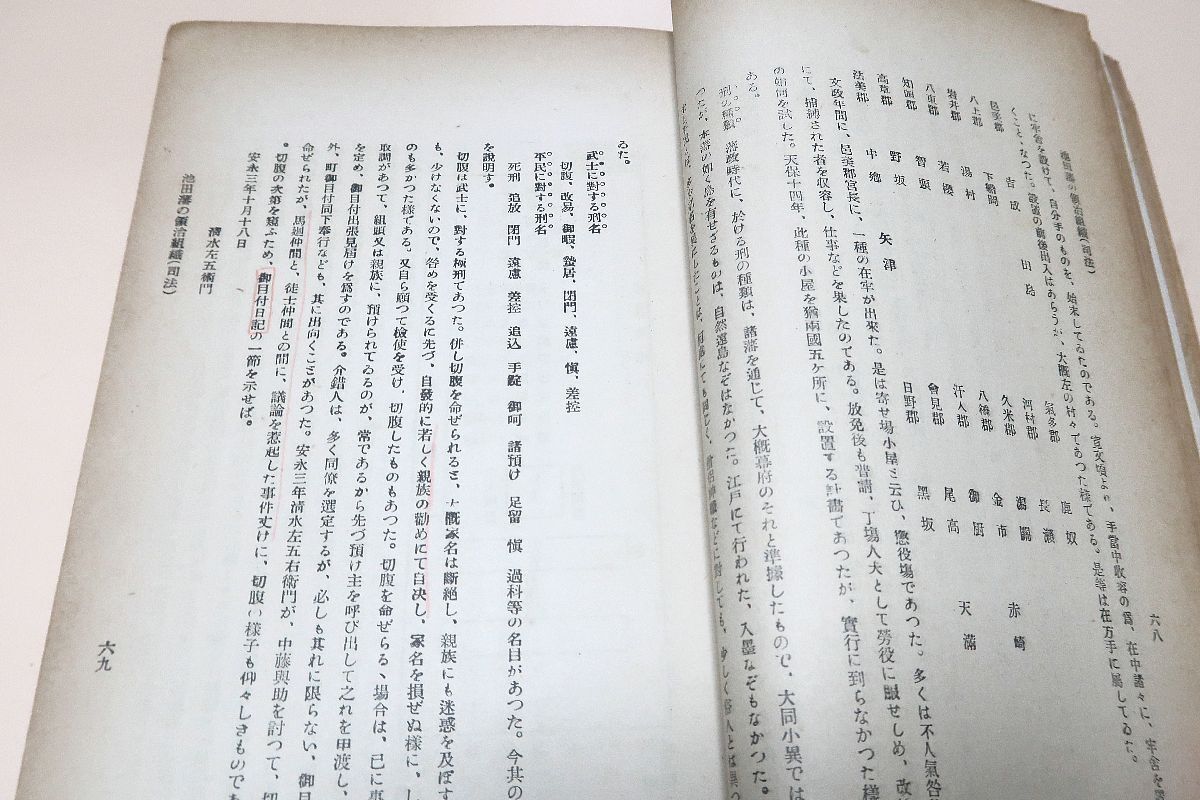 池田藩の領治組織(司法)
六八
に牢舎を設けて、自分手のものを、始末してゐたのである。寛文頃より、手當中收容の爲、在中諸々に、牢舎を
くことゝなつた。設置の前後出入はあらうが、大概左の村々であつた樣である。是等は在方手に屬してゐた。
邑美郡 吉成 田島 氣多郡 鹿奴
八上郡 下船岡 河村郡 長瀬
岩井郡 湯村 久米郡 赤崎
八東郡 若櫻 八橋郡
智頭 汗入郡 御厨 天滿
知頭郡 野坂 會見郡 尾高
高草郡 中 矢津 日野郡 黑坂
法美郡
文政年間に、邑美郡宮長に、一種の在牢が出來た。是は寄せ場小屋と云ひ、懲役場であつた。多くは不人氣
にて、捕縛された者を收容し、仕事などを果したのである。放免後も普請、丁場人夫として勞役に服せしめ、改
の如何を試した。天保十四年、此種の小屋を猶兩國五ケ所に、設置する計畫であつたが、實行に到らなかつた樣
ある。
刑の種類 藩政時代に、於ける刑の種類は、諸藩を通じて、大概幕府のそれと準據したもので、大同小異では
つたが、本藩の如く島を有せざるものは、自然遠島なぞはなかつた。江戸にて行われた、入墨なぞもなかつた。
るた。
武士に對する刑名
切腹、改易、御暇、蟄居、閉門、遠慮、愼、差控
平民に對する刑名
死刑 追放 閉門 遠慮 差控 追込 手錠 御呵 諸預け 足留 愼 過料等の名目があつた。今其の
を說明す。
切腹は武士に、對する極刑であつた。併し切腹を命ぜられると、大概家名は斷絶し、親族にも迷惑を及ぼす
も、少けなくないので、咎めを受くるに先づ、自發的に若しく親族の勸めにて自決し、家名を損ぜぬ樣に、し
のも多かつた樣である。又自ら願つて檢使を受け、切腹したものもあつた。切腹を命ぜらるゝ場合は、已に事
取調があつて、組頭又は親族に、預けられてゐるのが、常であるから先づ預け主を呼び出して之れを申渡し、
を定め、御目付出張見屆けを爲すのである。介錯人は、多く同僚を選定するが、必しも其れに限らない、御目
外、町御目付同下奉行なども、其に出向くことがあつた。安永三年清水左五右衛門が、中藤與助を討つて、切
命ぜられたが、馬廻仲間と、徒士仲間との間に、議論を惹起した事件丈けに、切腹の樣子も仰々しきものであ
。切腹の次第を窺ふため、御目付日記の一節を示せば。
安永三年十月十八日
清水左五衛門
池田藩の領治組織(司法)
六九